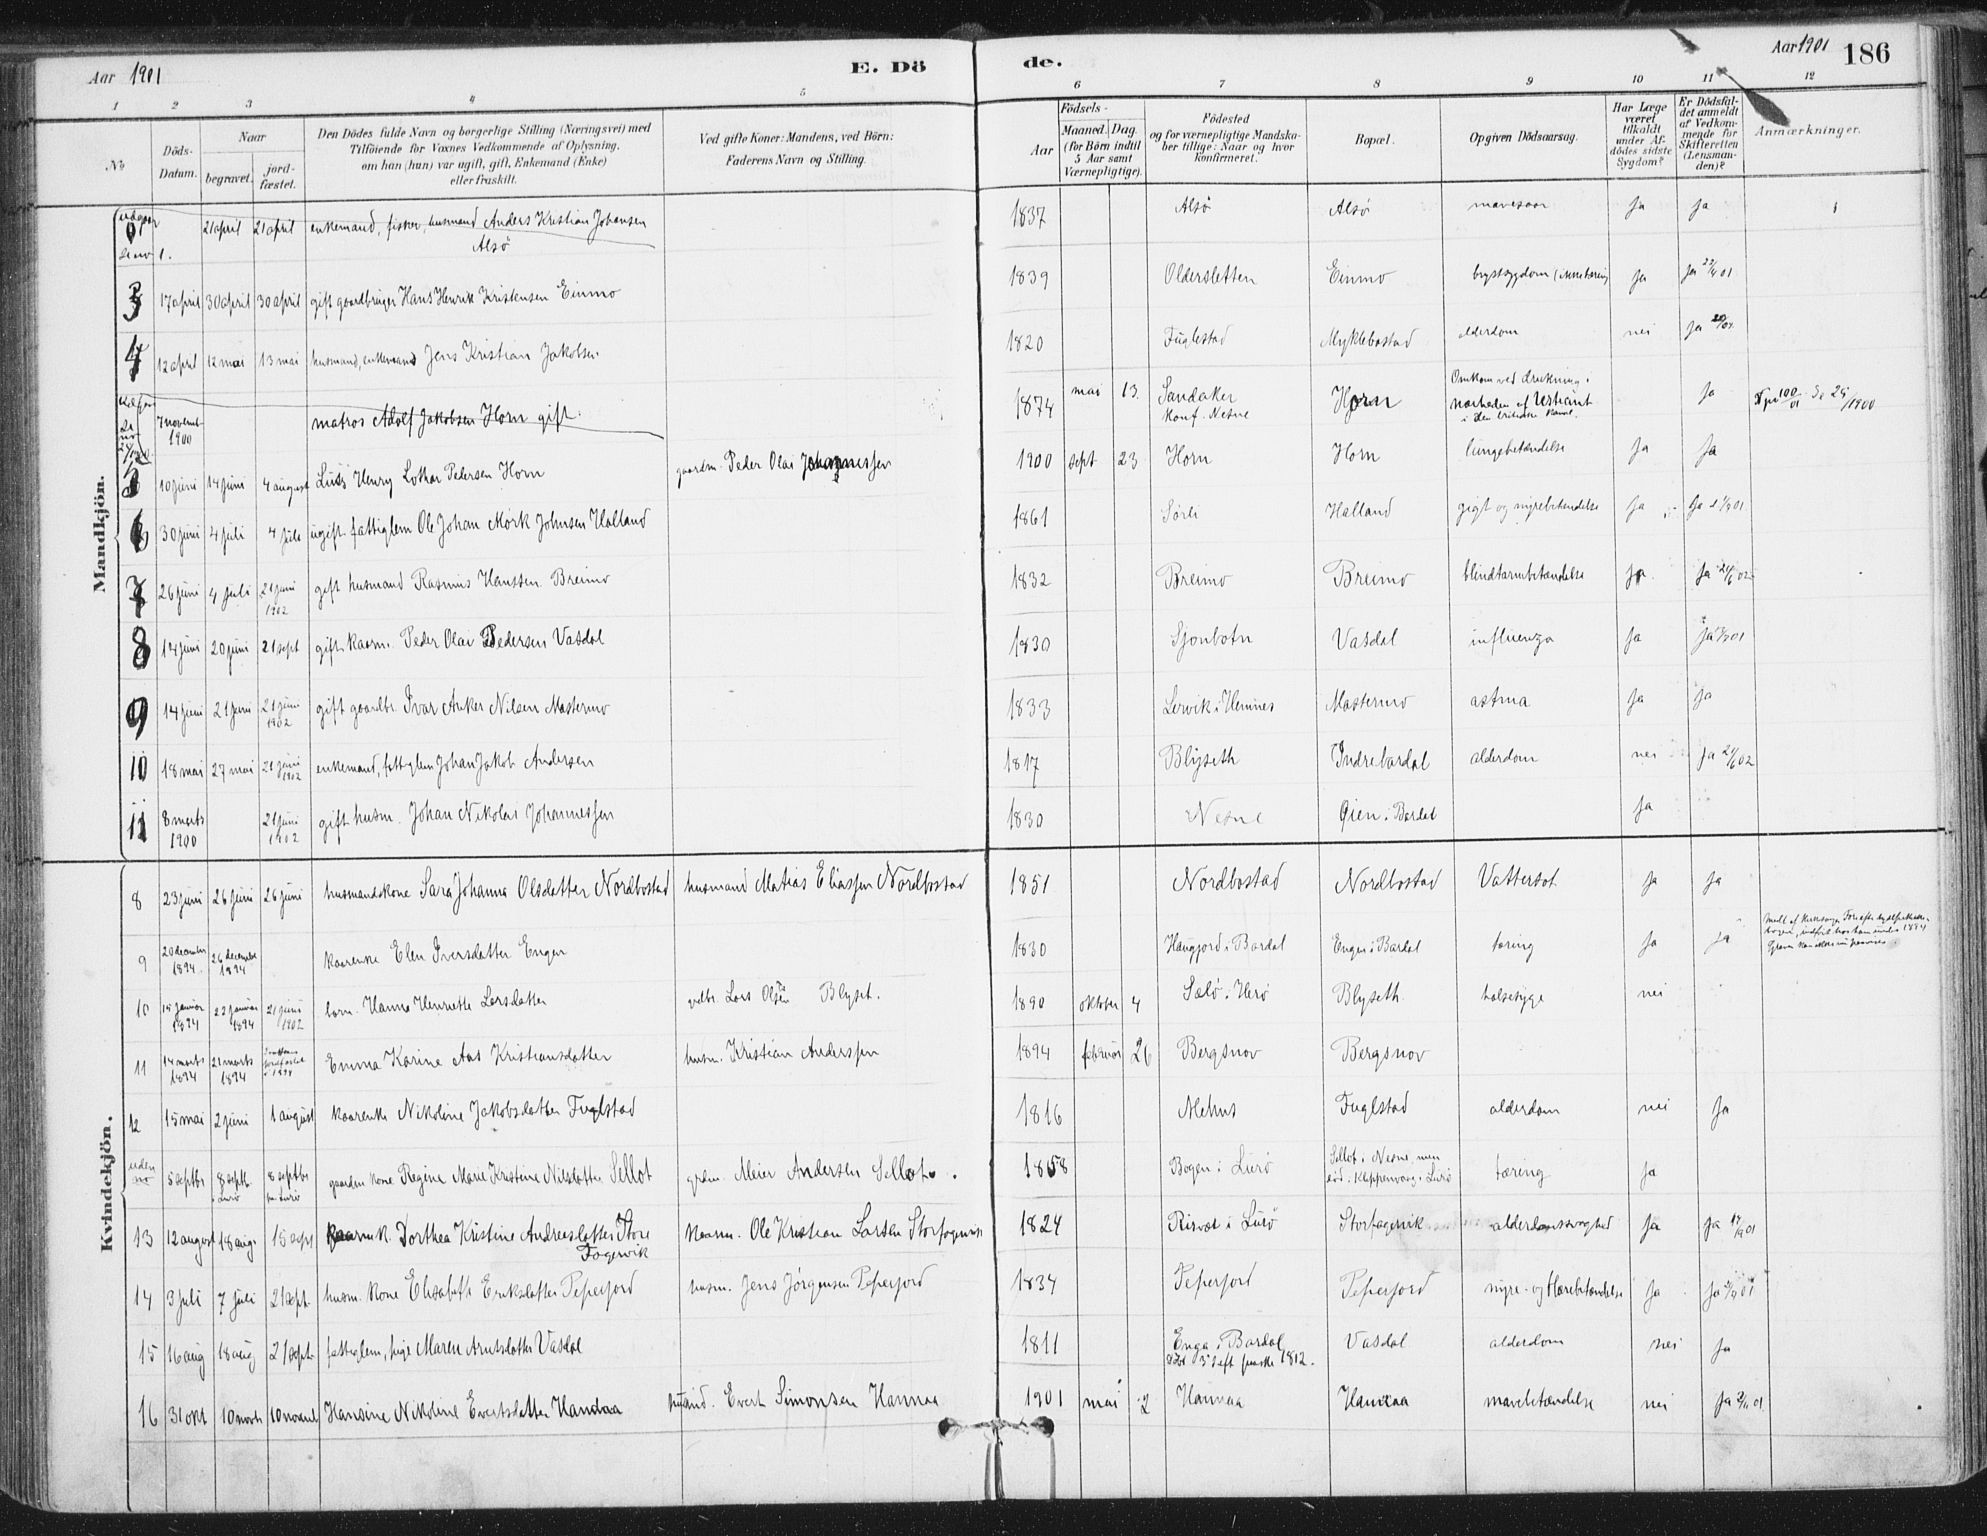 Aar 1901
E. Döde.
Aar 1901 186
1 2 3 4 5 6 7 8 9 10 11 12
No
Döds-Datum.
Naar
begravet.
jord-fæstet.
Den Dödes fulde Navn og borgerlige Stilling (Næringsvei) med
Tilföiende for Voxnes Vedkommende af Oplysning,
om han (hun) var ugift, gift, Enkemand (Enke)
eller fraskilt.
Ved gifte Koner: Mandens, ved Börn:
Faderens Navn og Stilling.
Födsels-
Aar
Maaned. Dag.
(for Börn indtil
5 Aar samt
Værnepligtige).
Födested
og for værnepligtige Mandska-
ber tillige: Naar og hvor
konfirmeret.
Bopæl.
Opgiven Dödsaarsag.
Har Læge
været
tilkaldt
under Af-
dödes sidste
Sygdom?
Er Dödsfal-
det anmeldt
af Vedkom-
mende for
Skifteretten
(Lensman-
den)?
Anmærkninger.
Mandkjön.
21 april 21 april enkemand, fisker, husmand Anders Kristian Johansen 1837 Alsö Alsö mavesaar Ja Ja
Alsö
3 17 april 30 april 30 april gift gaardbruger Hans Henrik Kristensen Einmo 1839 Oldersletten Einmo brystsygdom Ja Ja
4 12 april 12 mai 13 mai husmand, enkemand Jens Kristian Jakobsen 1820 Fuglestad Myklebostad alderdom nei Ja
7 novemb 1900 matros Adolf Jakobsen Horn gift. 1874 mai 13. Sandaker Konf. Nesne Horn Omkom ved drukning i nærheden af Ushant i den britiske kanal. Ja
10 juni 14 juni 4 august Luis Henry Lothar Pedersen Horn gaardm. Peder Olai Johannessen 1900 sept 23 Horn Horn lungebetændelse Ja Ja
6 30 juni 4 juli 4 jule ugift fattiglem Ole Johan Mörk Johnsen Halland 1861 Halland gigt og nyrebetændelse Ja Ja
7 26 juni 4 juli 21 juni 1902 gift husmand Rasmus Hanssen Breimo 1832 Breimo Breimo blindtarmbetændelse Ja Ja 21/6 02
8 14 juni 20 juni 21 sept gift kaarm. Peder Olai Pedersen Vasdal 1830 Sjonbotn Vasdal influenza Ja Ja
9 14 juni 21 juni 21 juni 1902 gift gaardbr. Ivar Anker Nilsen Mastermo 1833 Lervik i Hemnes Mastermo astma Ja Ja
10 18 mai 27 mai 21 juni 1902 enkemand, fattiglem Johan Jakob Andersen 1817 Blyseth Indrebardal alderdom nei Ja 21/6 02
11 8 marts 1900 21 juni 1902 gift husm. Johan Nikolai Johannessen 1830 Nesne Öien i Bardal Ja
Kvindekjön.
8 23 juni 26 juni 26 juni husmandskone Sara Johanna Olsdatter Nordbostad husmand Matias Eliassen Nordbostad 1851 Nordbostad Nordbostad Vattersot Ja Ja
9 20 december 1894. 26 december 1894 kaarenke Elen Iversdatter Engen 1830 Haugjord i Bardal Engen i Bardal tæring Ja Ja
10 15 januar 1894 22 januar 1894 21 juni 1902 barn. Hanna Henriette Larsdatter Lars Olsen Blyset. 1890 oktober 4 Salö i Herö Blyseth halssyge nei
11 14 marts 1894 21 marts 1894 Emma Karine Aas Kristiansdatter husm. Kristian Anderssen 1894 februar 26 Bergsnov Bergsnov
12 15 mai 2 juni 1 august kaarenke Nikoline Jakobsdatter Fuglstad 1816 Alehus Fuglstad alderdom nei Ja
uden no 5 septbr 8 sept. i Lurö 8 septbr paa Lurö gaardm kone Regine Marie Kristine Nilsdatter Sellot grdm. Meier Andersen Sellot. 1858 Bogen i Lurö Sellot i Nesne, men död i Kleppenvaag i Lurö tæring Ja
13 12 august 18 aug. 15 sept kaarmk. Dorthea Kristine Andreasdatter Store Fagervik kaarm. Ole Kristian Larsen Storfagervik 1824 Risvæt i Lurö Storfagervik alderdomssvaghed Ja Ja
14 3 juli 7 juli 21 sept. husm. kone Elisabeth Eriksdatter Peperfjord husm. Jens Jörgensen Peperfjord 1834 Peperfjord Peperfjord nyre- og blærebetændelse Ja Ja
15 16 aug 18 aug 21 sept. fattiglem, pige Maren Arntsdatter Vasdal 1811 Enga i Bardal Vasdal alderdom nei Ja
16 31 okt 10 novb 10 novemb Hansine Nikoline Evertsdatter Handaa Evert Simonsen Hannaa 1901 mai 2 Hannaa Hannaa mavebetændelse nei Ja